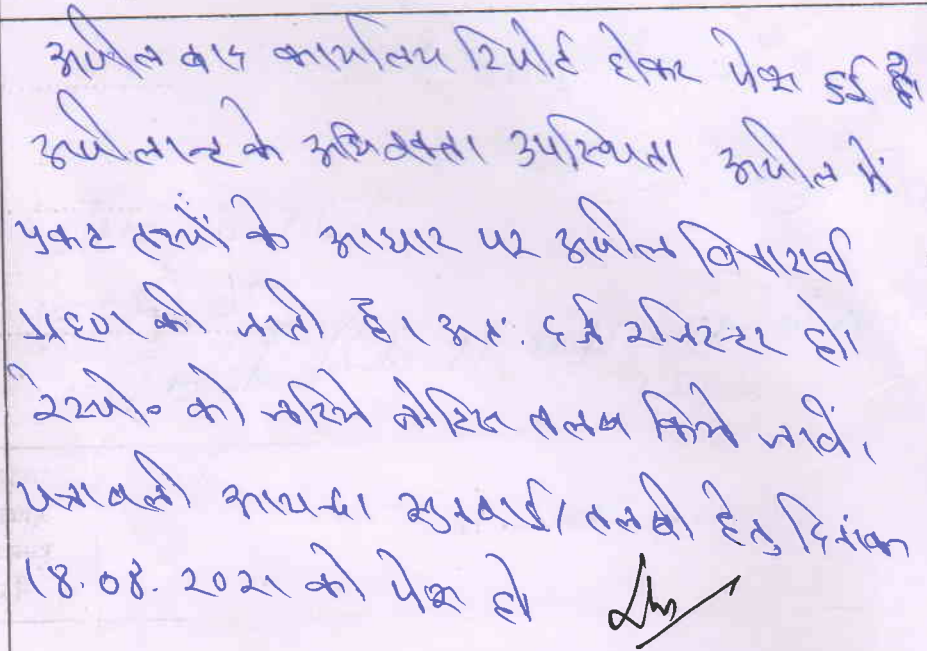 अपील बाद कार्यालय रिपोर्ट होकर पेश हुई है।
अपीलान्ट के अधिवक्ता उपस्थित। अपील में
प्रकट तथ्यों के आधार पर अपील विचारार्थ
ग्रहण की जाती है। अतः दर्ज रजिस्टर हो।
रेस्पो० को जरिये नोटिस तलब किये जावें।
पत्रावली आयन्दा सुनवाई/तलबी हेतु दिनांक
18.08.2021 को पेश हो